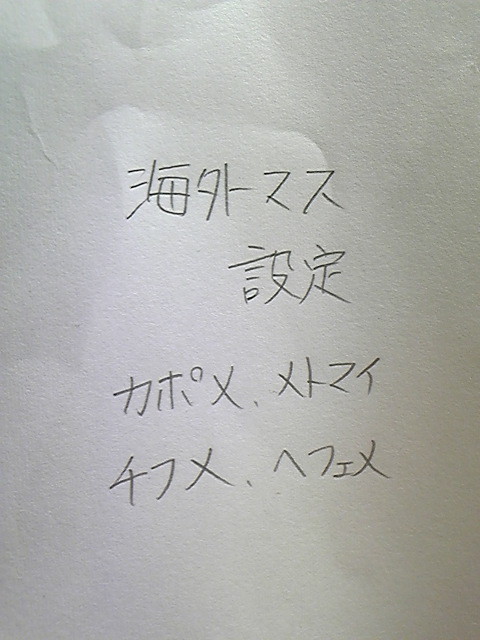 海外トマス
設定
カポメ、メトマイ
チフメ、ヘフェメ